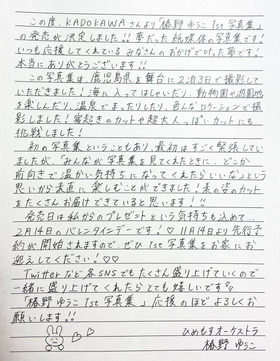 この度、KADOKAWAさんより「椿野ゆうこ 1st 写真集」
の発売が決定しました!! 夢だった紙媒体の写真集です!
いつも応援してくれているみなさんのおかげで叶った夢です!
本当にありがとうございます!!
この写真集は、鹿児島県を舞台に2泊3日で撮影して
いただきました! 海に入ってはしゃいだり、動物園や遊園地
を楽しんだり、温泉でまったりしたり、色んなロケーションで撮
影しました! 寝起きのカットや超大人っぽいカットにも
挑戦しました!
初の写真集ということもあり、最初はすごく緊張してい
ましたが、「みんなが写真集を見てくれたときに、どこか
前向きで温かい気持ちになってくれたらいいな」という
思いから素直に楽しむことができました! 素の姿のカット
をたくさんお届けできていると思います!!
発売日は私からのプレゼントという気持ちも込めて...
2月14日のバレンタインデーです!♡ 11月14日より先行予
約が開始されますので、ぜひ 1st 写真集をお家にお
迎えしてください!♡♡
Twitterなど各SNSでもたくさん盛り上げていくので
一緒に盛り上げてくれたらとても嬉しいです!
「椿野ゆうこ 1st 写真集」応援のほどよろしくお
願いします!!
ひめもすオーケストラ
椿野 ゆうこ